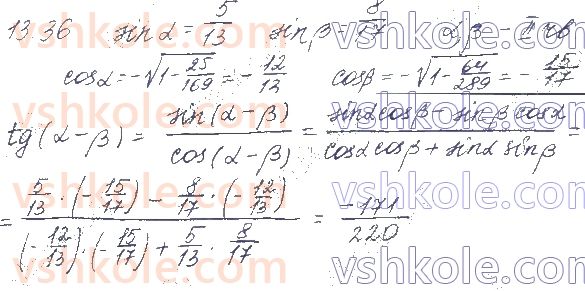 13.36 sin α = 5/13 sin β = 8/17 α, β – II чв
cos α = -√(1 - 25/169) = -12/13 cos β = -√(1 - 64/289) = -15/17
tg(α-β) = sin(α-β)/cos(α-β) = (sin α cos β - sin β cos α)/(cos α cos β + sin α sin β) =
= (5/13 · (-15/17) - 8/17 · (-12/13))/((-12/13) · (-15/17) + 5/13 · 8/17) = -171/220
vshkole.com